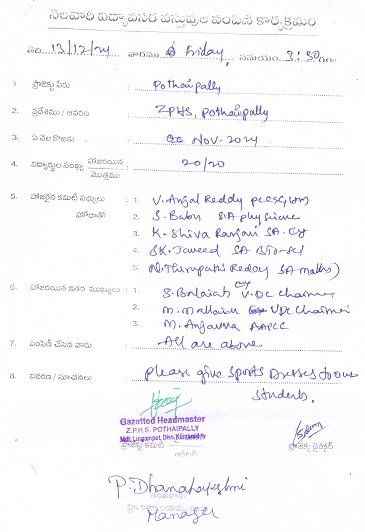 నెలవారి విద్యావసర వస్తువుల పంపిణి కార్యక్రమం
తేది 13/12/24 వారము Friday, సమయం 3:30
1. ప్రాజెక్టు పేరు : Pothaipally
2. ప్రదేశము / ఆవరణ : ZPHS, Pothaipally
3. ఏ నెల కొరకు : Nov. 2024
4. విద్యార్థుల సంఖ్య హాజరయిన / మొత్తము : 20/20
5. హాజరైన కమిటి సభ్యులు హోదాతో : 1. V. Anjal Reddy
2. S. Babu S.A phy science
3. K. Shiva Ranjani SA.
4. SK. Javeed SA
5. N. Thirupathi Reddy SA maths)
6. హాజరయిన ఇతర ముఖ్యులు : 1. S. Balaiah V.DC Chairman
2. M. Mallaiah VDC Chairman
3. M. Anjavva AAPC
7. పంపిణీ చేసిన వారు : All are above
8. వివరణ / సూచనలు : please give sports Dresses to our
students.
Gazetted Headmaster
Z.P.H.S. POTHAIPALLY
Mdl: Lingampet, Dist: Kamareddy
ప్రాజెక్టు కమిటి
ప్రాజెక్టు డైరెక్టర్
P. Dhanalaxmi
Manager